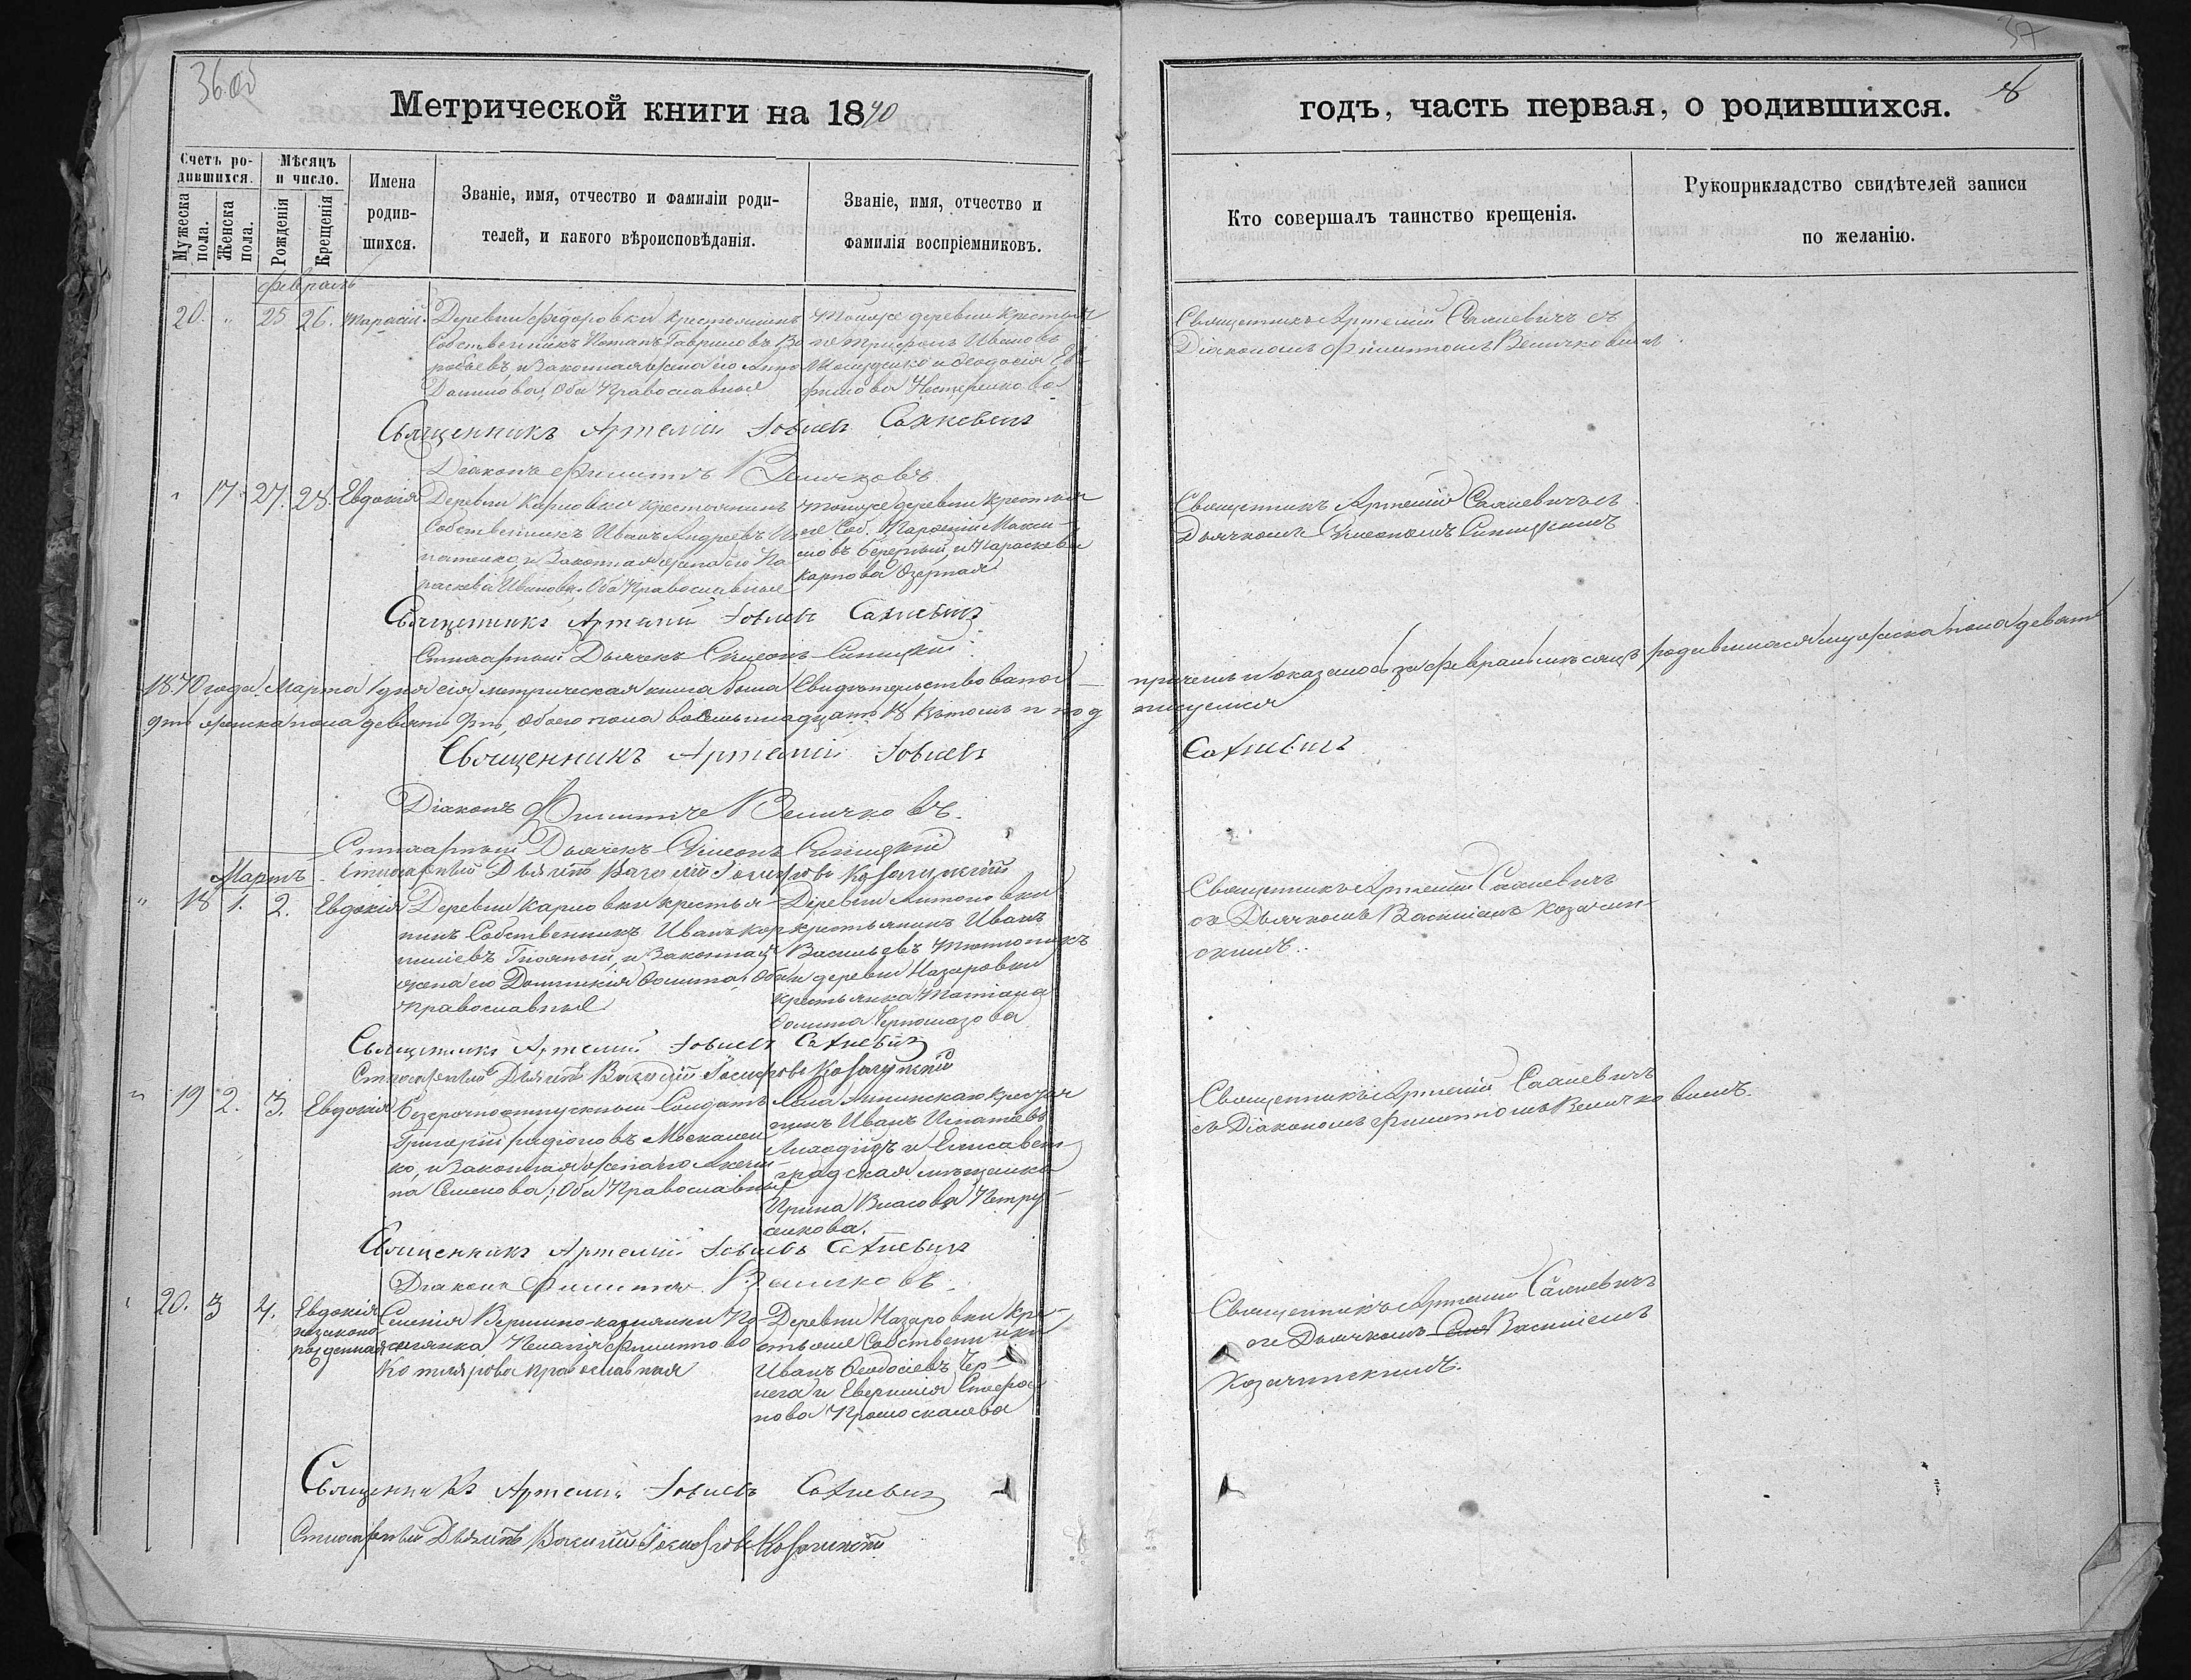 36об
37
8
Метрической книги на 1870
годъ, часть первая, о родившихся.
Счетъ ро-
дившихся.
Мѣсяцъ
и число.
Мужеска
пола.
Женска
пола.
Рожденія
Крещенія
Имена
родив-
шихся.
Званіе, имя, отчество и фамиліи роди-
телей, и какого вѣроисповѣданія.
Званіе, имя, отчество и
фамилія воспріемниковъ.
Кто совершалъ таинство крещенія.
Рукоприкладство свидѣтелей записи
по желанію.
Февраль
20. " 25 26. Тарасій.
Деревни Федоровки крестьянинъ
Собственникъ Потапъ Гавриловъ Во
робьевъ, и Законная жена его Анна
Данилова, Оба Православные
Тойже деревни крестья
не Трифонъ Ивановъ
и Феодосія Ев
фимова Нестеренкова
Священникъ Артемій Сахневичъ съ
Діакономъ Филиппомъ Величковымъ.
Священникъ Артемій Іовлевъ Сахневичъ
Діаконъ Филиппъ Величковъ
" 17. 27. 28. Евдокія
Деревни Карловки крестьянинъ
Собственникъ Иванъ Андреевъ Иг
натенко, и Законная жена его Па
раскева Иванова, Оба Православные
Тойже деревни крестья
не Соб. Максі-
мовъ Бережный, и Параскева
Карпова Озерная
Священникъ Артемій Сахневичъ съ
Дьячкомъ Симеономъ Синицкимъ
Священникъ Артемій Іовлевъ Сахневичъ
Стихарный Дьячекъ Симеонъ Синицкій
1870 года Марта 1 дня сія метрическая книга была Свидѣтельствована
причемъ и оказалось за февраль мѣсяцъ родившихся мужеска пола девять
9ть женска пола девять 9ть, обоего пола восемьнадцать 18 въ томъ и под
писуемся
Священникъ Артемій Іовлевъ
Сахневичъ
Діаконъ Филиппъ Величковъ.
Стихарный Дьячекъ Симеонъ Синицкій
Стихарный Дьячекъ Василій Іосифовъ Козачинскій
Мартъ
" 18 1. 2. Евдокія
Деревни Карловки крестья-
нинъ Собственникъ Иванъ Кор
ниліевъ и Законная
жена его Домникія Фомина, Оба
Православные
Деревни Антоновки
крестьянинъ Иванъ
Васильевъ Тютюникъ
и деревни Назаровки
крестьянка Татіана
Фомина Черномазова
Священникъ Артемій Сахневичъ
съ Дьячкомъ Василіемъ Козачин-
скимъ.
Священникъ Артемій Іовлевъ Сахневичъ
Стихарный Дьячекъ Василій Іосифовъ Козачинскій
" 19 2. 3. Евдокія
Безсрочноотпускный Солдатъ
Григорій Радіоновъ Москален
ко, и Законная жена его Акели
на Семенова; Оба Православные
Села Аннинскаго крестья
нинъ Иванъ Игнатьевъ
Лиходідъ и Елисавет-
градская мѣщанка
Ирина Власова Петру-
сенкова.
Священникъ Артемій Сахневичъ
съ Діакономъ Филиппомъ Величковымъ.
Священникъ Артемій Іовлевъ Сахневичъ
Діаконъ Филиппъ Величковъ.
" 20. 3 4. Евдокія
незаконо
рожденная
Селенія Вершино-каменки По
селянка Пелагія Филиппова
Котлярова православная
Деревни Назаровки кре-
стьяне Собственники
Иванъ Феодосіевъ Чер-
нега и Евгенія Стефа
нова Кромоскалева
Священникъ Артемій Сахневичъ
съ Дьячкомъ Василіемъ
Козачинскимъ.
Священникъ Артемій Іовлевъ Сахневичъ
Стихарный Дьячекъ Василій Іосифовъ Козачинскій